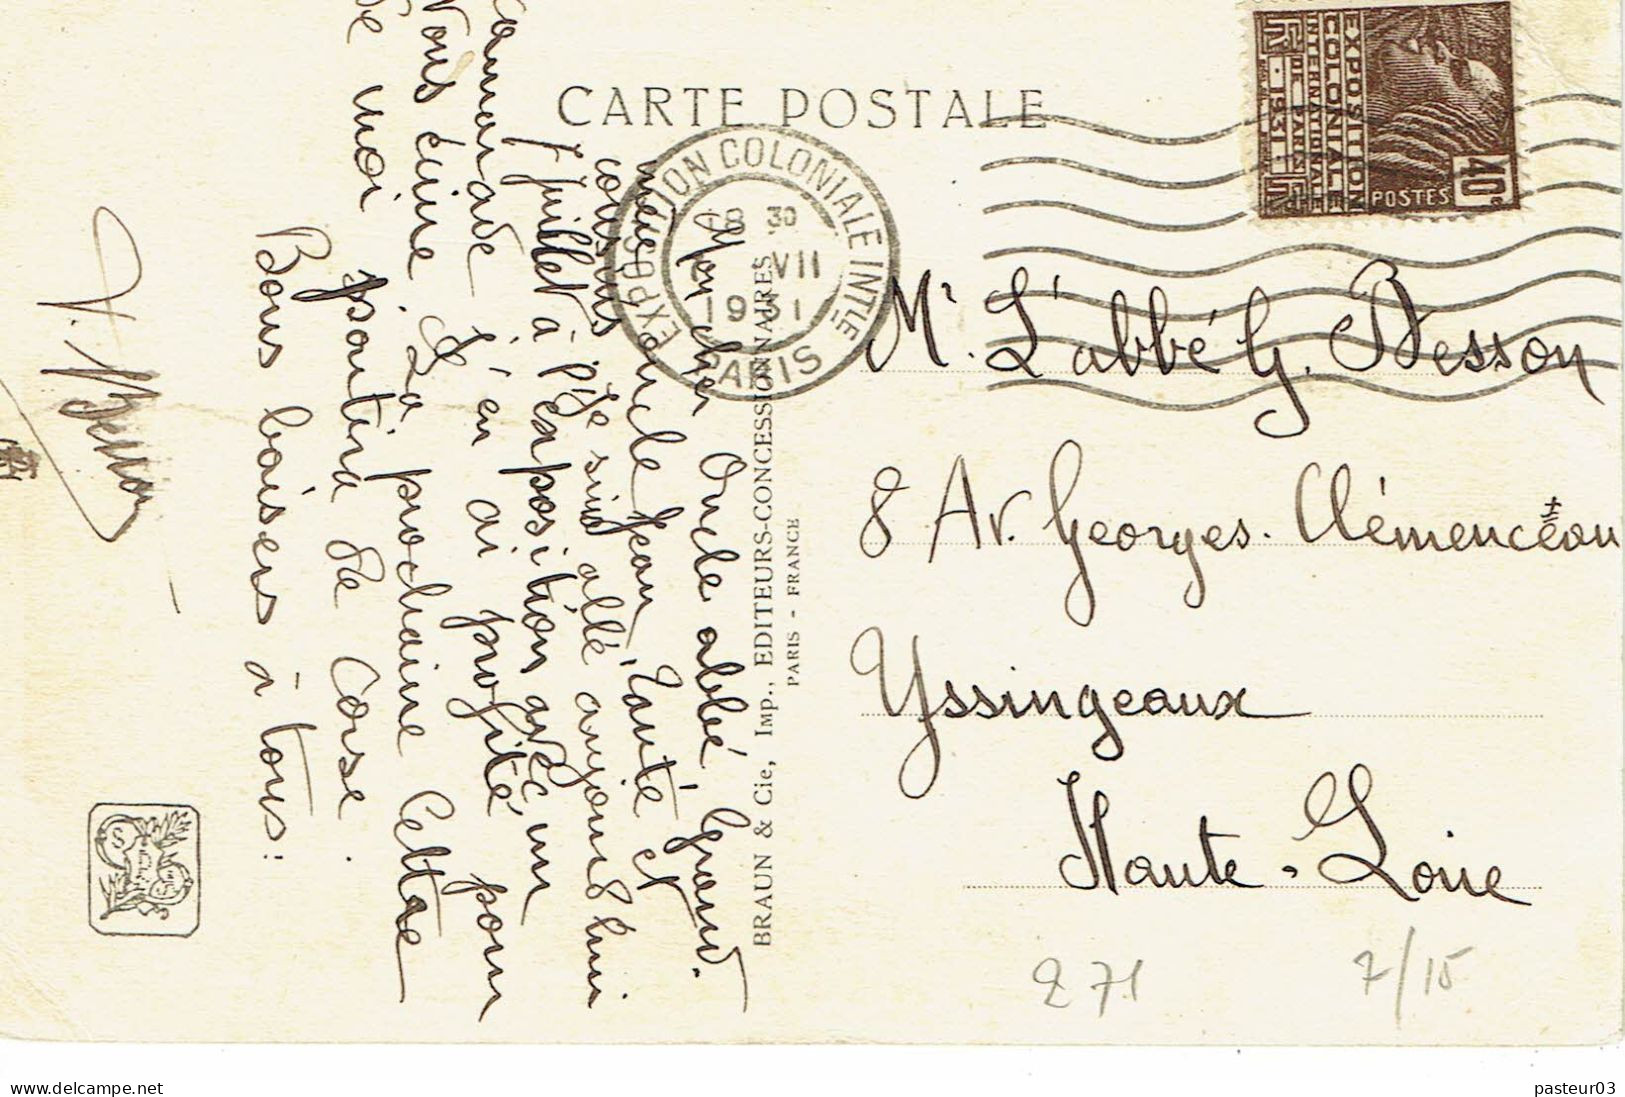 CARTE POSTALE
EXPOSITION
COLONIALE
INTERNATIONALE
DE PARIS
RF · 1931 · RF
POSTES
40c
EXPOSITION COLONIALE INTLE
PARIS
18 30
VII
1931
Mr. L'abbé G. Besson
8 Av. Georges. Clémenceau
Yssingeaux
Haute-Loire
271
7/15
BRAUN & Cie, IMP., EDITEURS-CONCESSIONNAIRES
PARIS - FRANCE
Mon cher Oncle abbé, Grand
mère, oncle Jean, Tante et
cousins. Je suis allé aujourd'hui
7 juillet à l'exposition avec un
camarade j'en ai profité pour
Vous écrire. La prochaine Cette
moi partira de Corse.
Bons baisers à tous.
J. Besson
delcampe.net
pasteur03